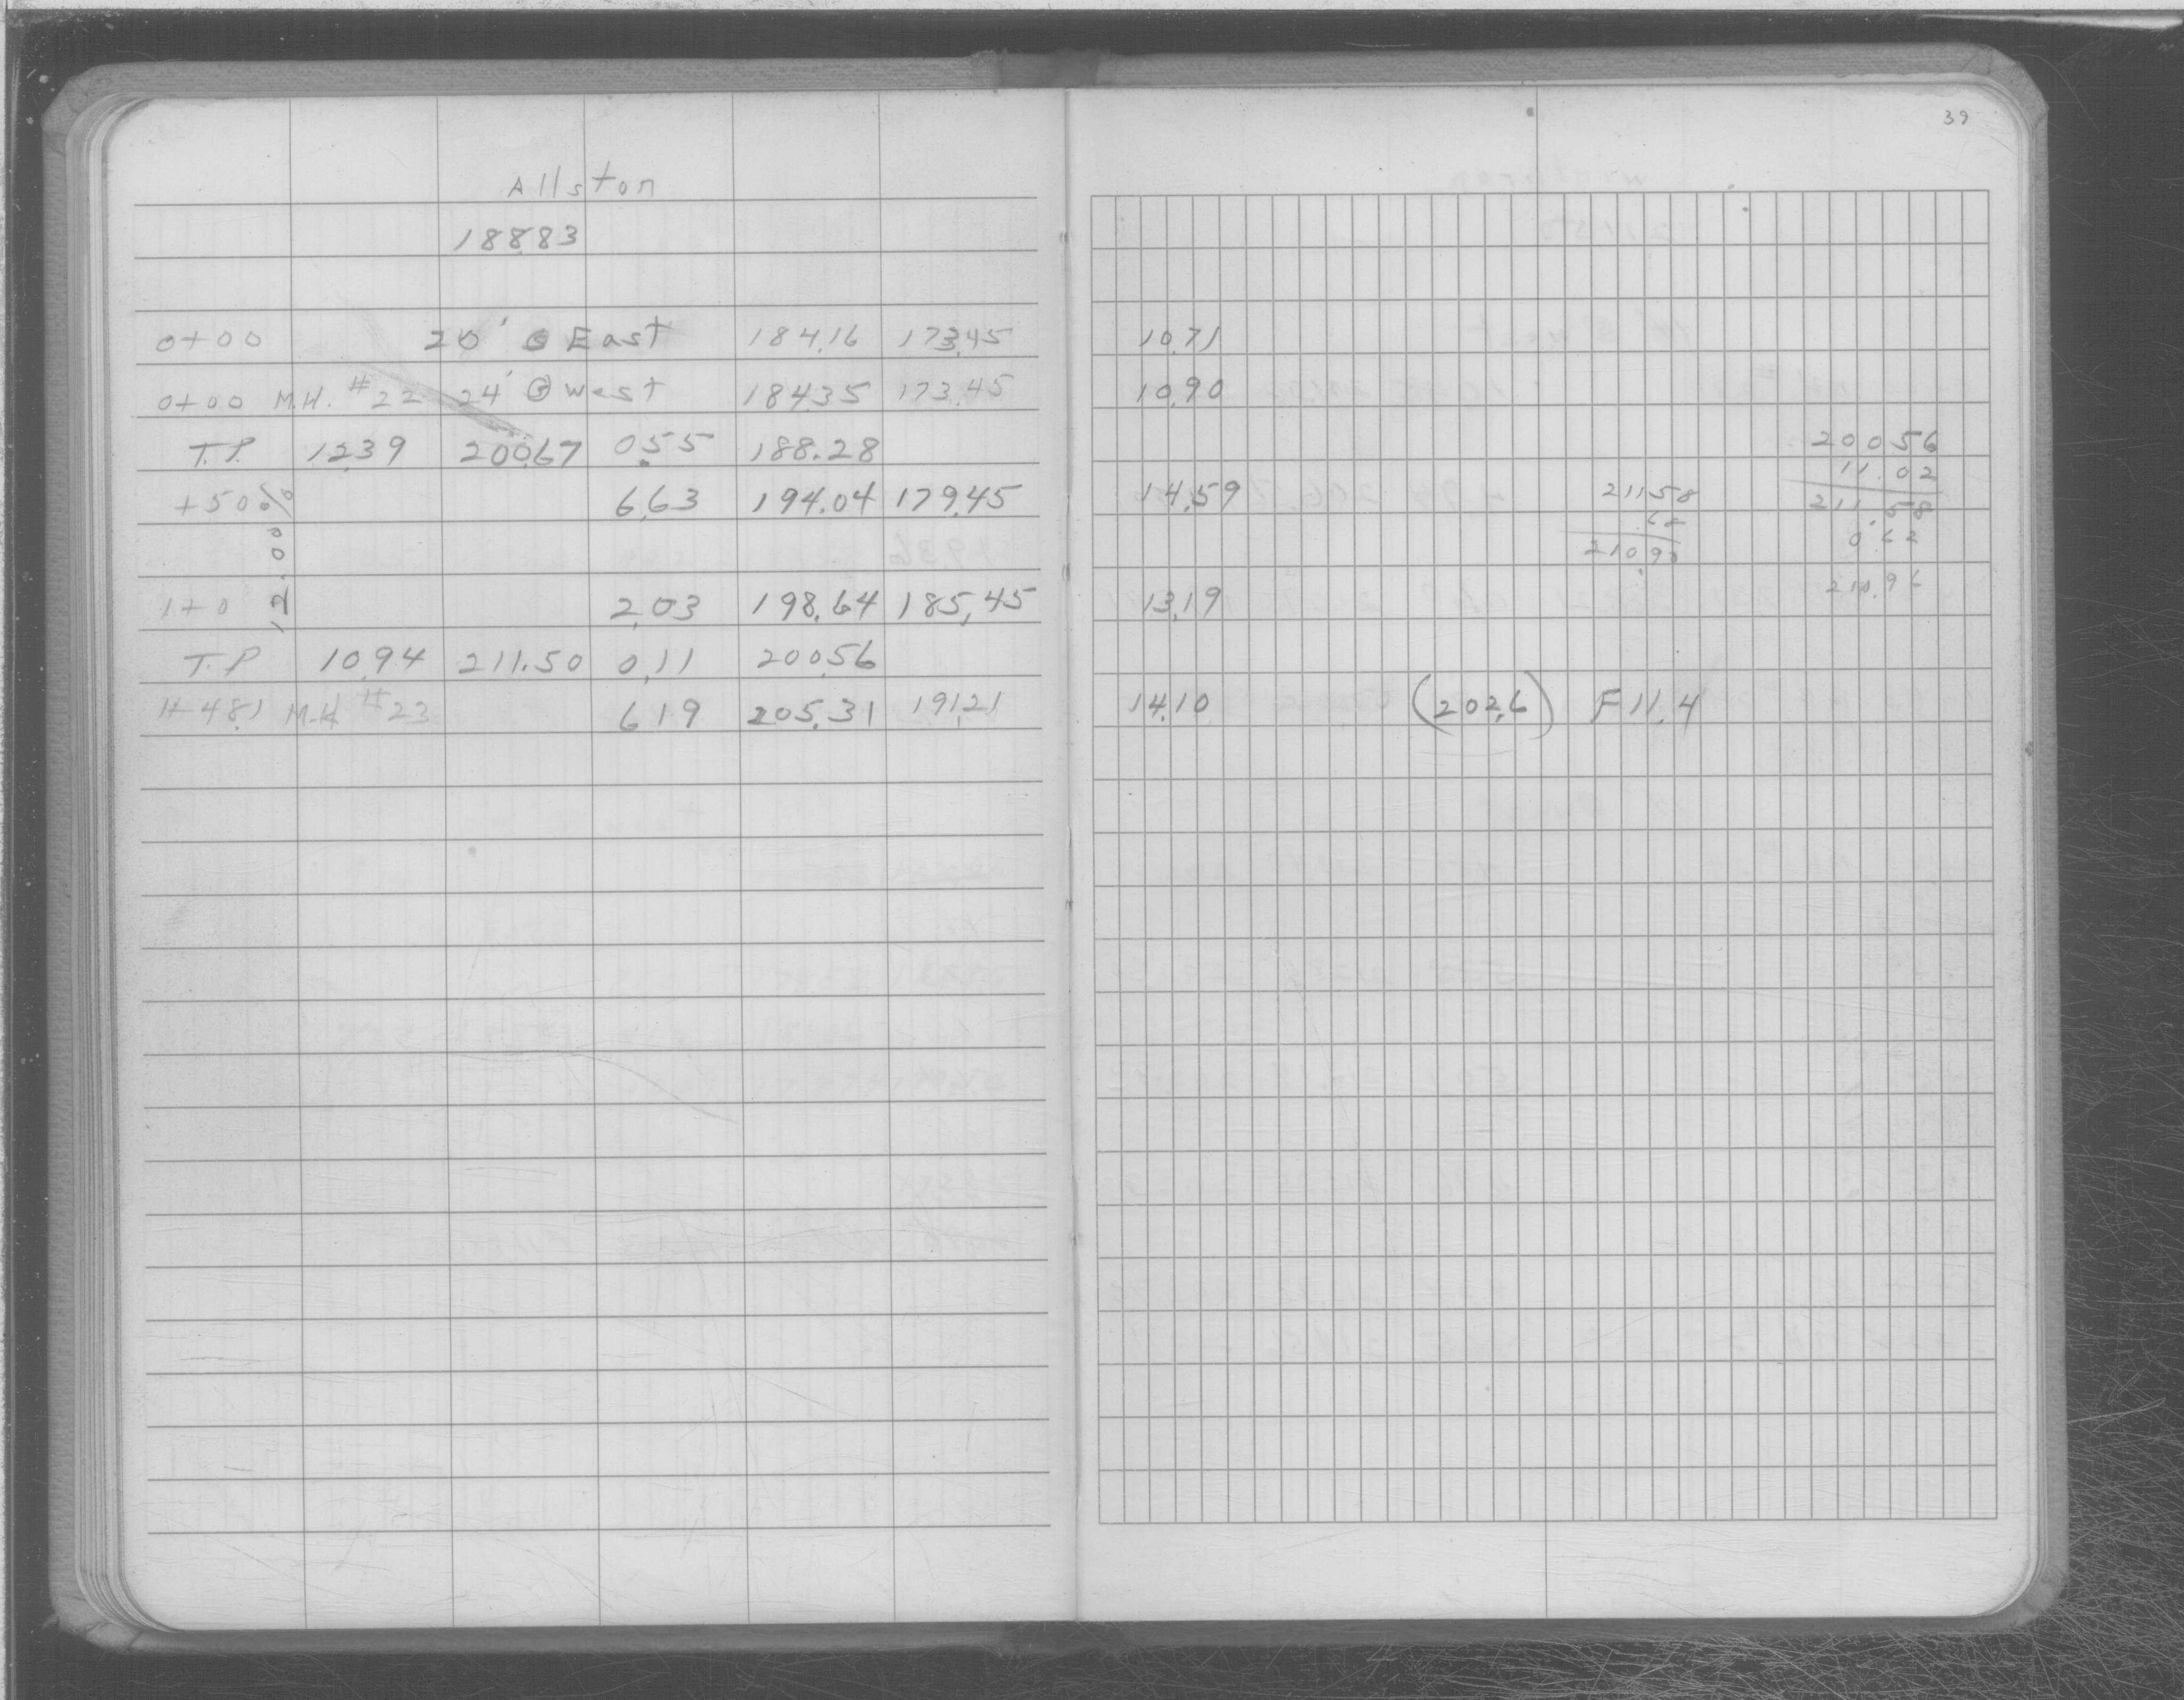 39
Allston
188.83
0+00 20' @ East 184.16 173.45 10.71
0+00 M.H. #22 24' @ West 184.35 173.45 10.90
T.P. 12.39 200.67 0.55 188.28
+50 6.63 194.04 179.45 14.59
12.00%
1+0 2.03 198.64 185.45 13.19
T.P 10.94 211.50 0.11 200.56
1+48.1 M.H #23 6.19 205.31 191.21 14.10 (202.6) F 11.4
211.58
.62
210.90
200.56
11.02
211.58
0.62
210.96